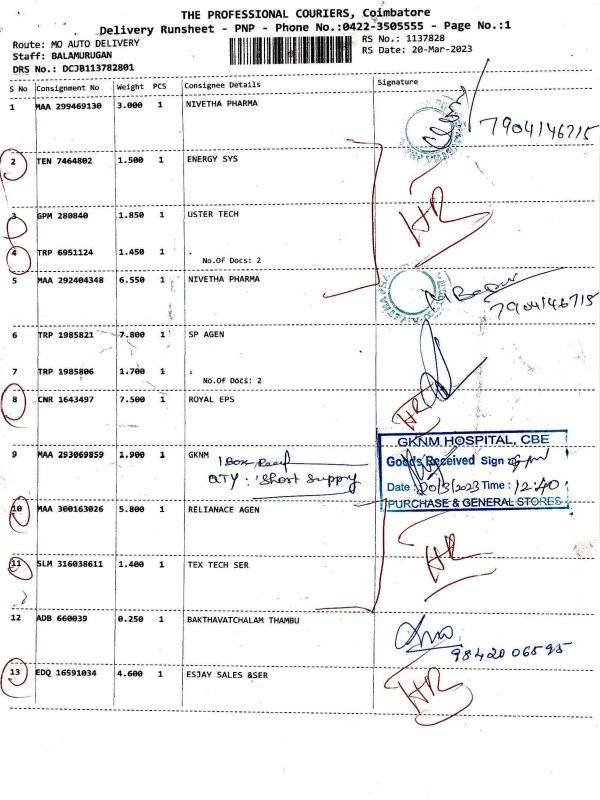 THE PROFESSIONAL COURIERS, Coimbatore
Delivery Runsheet - PNP - Phone No.:0422-3505555 - Page No.:1
Route: MO AUTO DELIVERY RS No.: 1137828
Staff: BALAMURUGAN RS Date: 20-Mar-2023
DRS No.: DCJB113782801
S No Consignment No Weight PCS Consignee Details Signature
1 MAA 299469130 3.000 1 NIVETHA PHARMA
7904146715
2 TEN 7464802 1.500 1 ENERGY SYS
HR
3 GPM 280840 1.850 1 USTER TECH
4 TRP 6951124 1.450 1 .
No.Of Docs: 2
5 MAA 292404348 6.550 1 NIVETHA PHARMA
7904146715
6 TRP 1985821 7.800 1 SP AGEN
7 TRP 1985806 1.700 1 .
No.Of Docs: 2
8 CNR 1643497 7.500 1 ROYAL EPS
HR
9 MAA 293069859 1.900 1 GKNM
1 Box
QTY : Short Supply
GKNM HOSPITAL, CBE
Goods Received Sign
Date : 20/3/2023 Time : 12:40
PURCHASE & GENERAL STORES
10 MAA 300163026 5.800 1 RELIANACE AGEN
HR
11 SLM 316038611 1.400 1 TEX TECH SER
12 ADB 660039 0.250 1 BAKTHAVATCHALAM THAMBU
9842006595
13 EDQ 16591034 4.600 1 ESJAY SALES &SER
HR